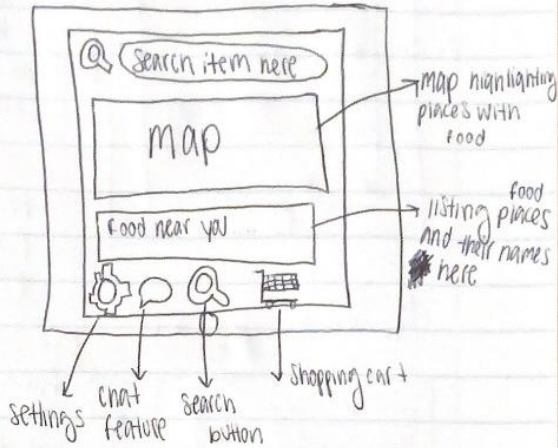 Search item here
map
Food near you
map highlighting
places with
food
food
listing places
and their names
here
settings
chat
feature
search
button
shopping cart